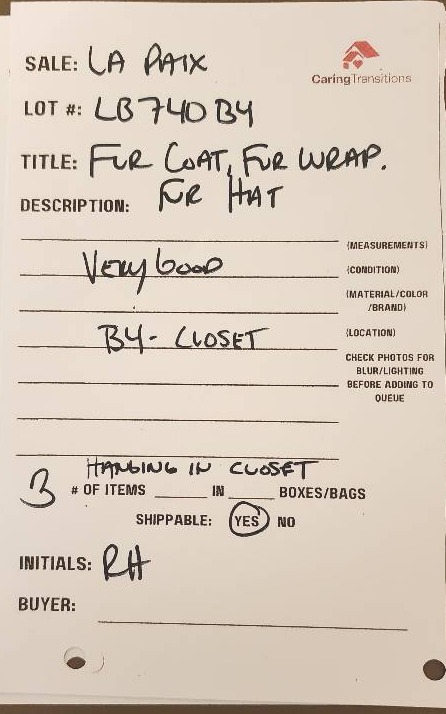 SALE: LA PAIX
CaringTransitions
LOT #: LB740B4
TITLE: FUR COAT, FUR WRAP.
DESCRIPTION: FUR HAT
(MEASUREMENTS)
VERY GOOD (CONDITION)
(MATERIAL/COLOR
/BRAND)
B4- CLOSET (LOCATION)
CHECK PHOTOS FOR
BLUR/LIGHTING
BEFORE ADDING TO
QUEUE
HANGING IN CLOSET
3 # OF ITEMS ____ IN ____ BOXES/BAGS
SHIPPABLE: YES NO
INITIALS: RH
BUYER: